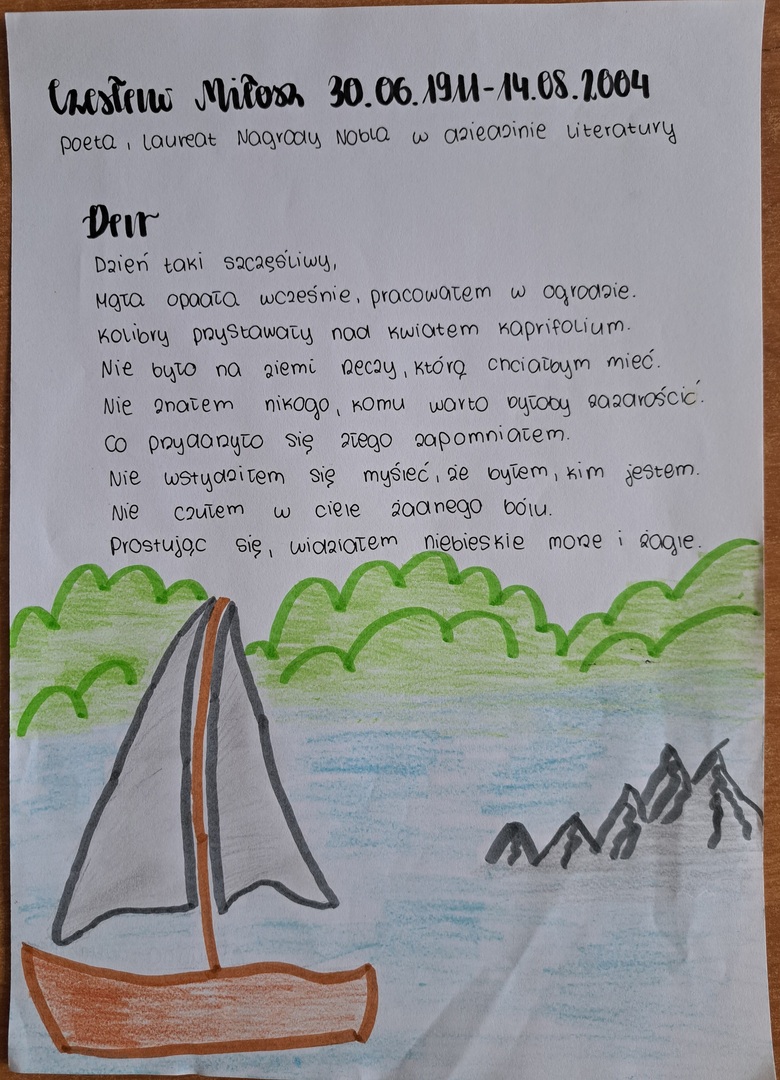 Czesław Miłosz 30.06.1911-14.08.2004
poeta, laureat Nagrody Nobla w dziedzinie literatury
Dar
Dzień taki szczęśliwy,
Mgła opadła wcześnie, pracowałem w ogrodzie.
Kolibry przystawały nad kwiatem kaprifolium.
Nie było na ziemi rzeczy, którą chciałbym mieć.
Nie znałem nikogo, komu warto byłoby zazdrościć.
Co przydarzyło się złego zapomniałem.
Nie wstydziłem się myśleć, że byłem, kim jestem.
Nie czułem w ciele żadnego bólu.
Prostując się, widziałem niebieskie morze i żagle.